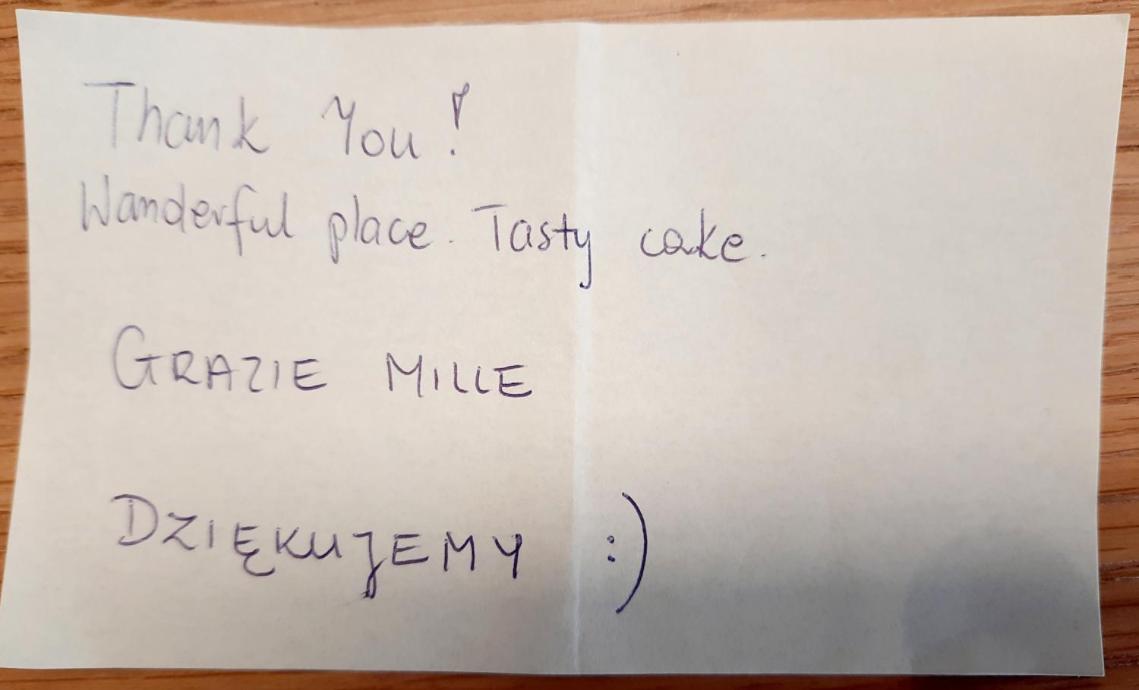 Thank You!
Wanderful place. Tasty cake.
GRAZIE MILLE
DZIĘKUJEMY :)